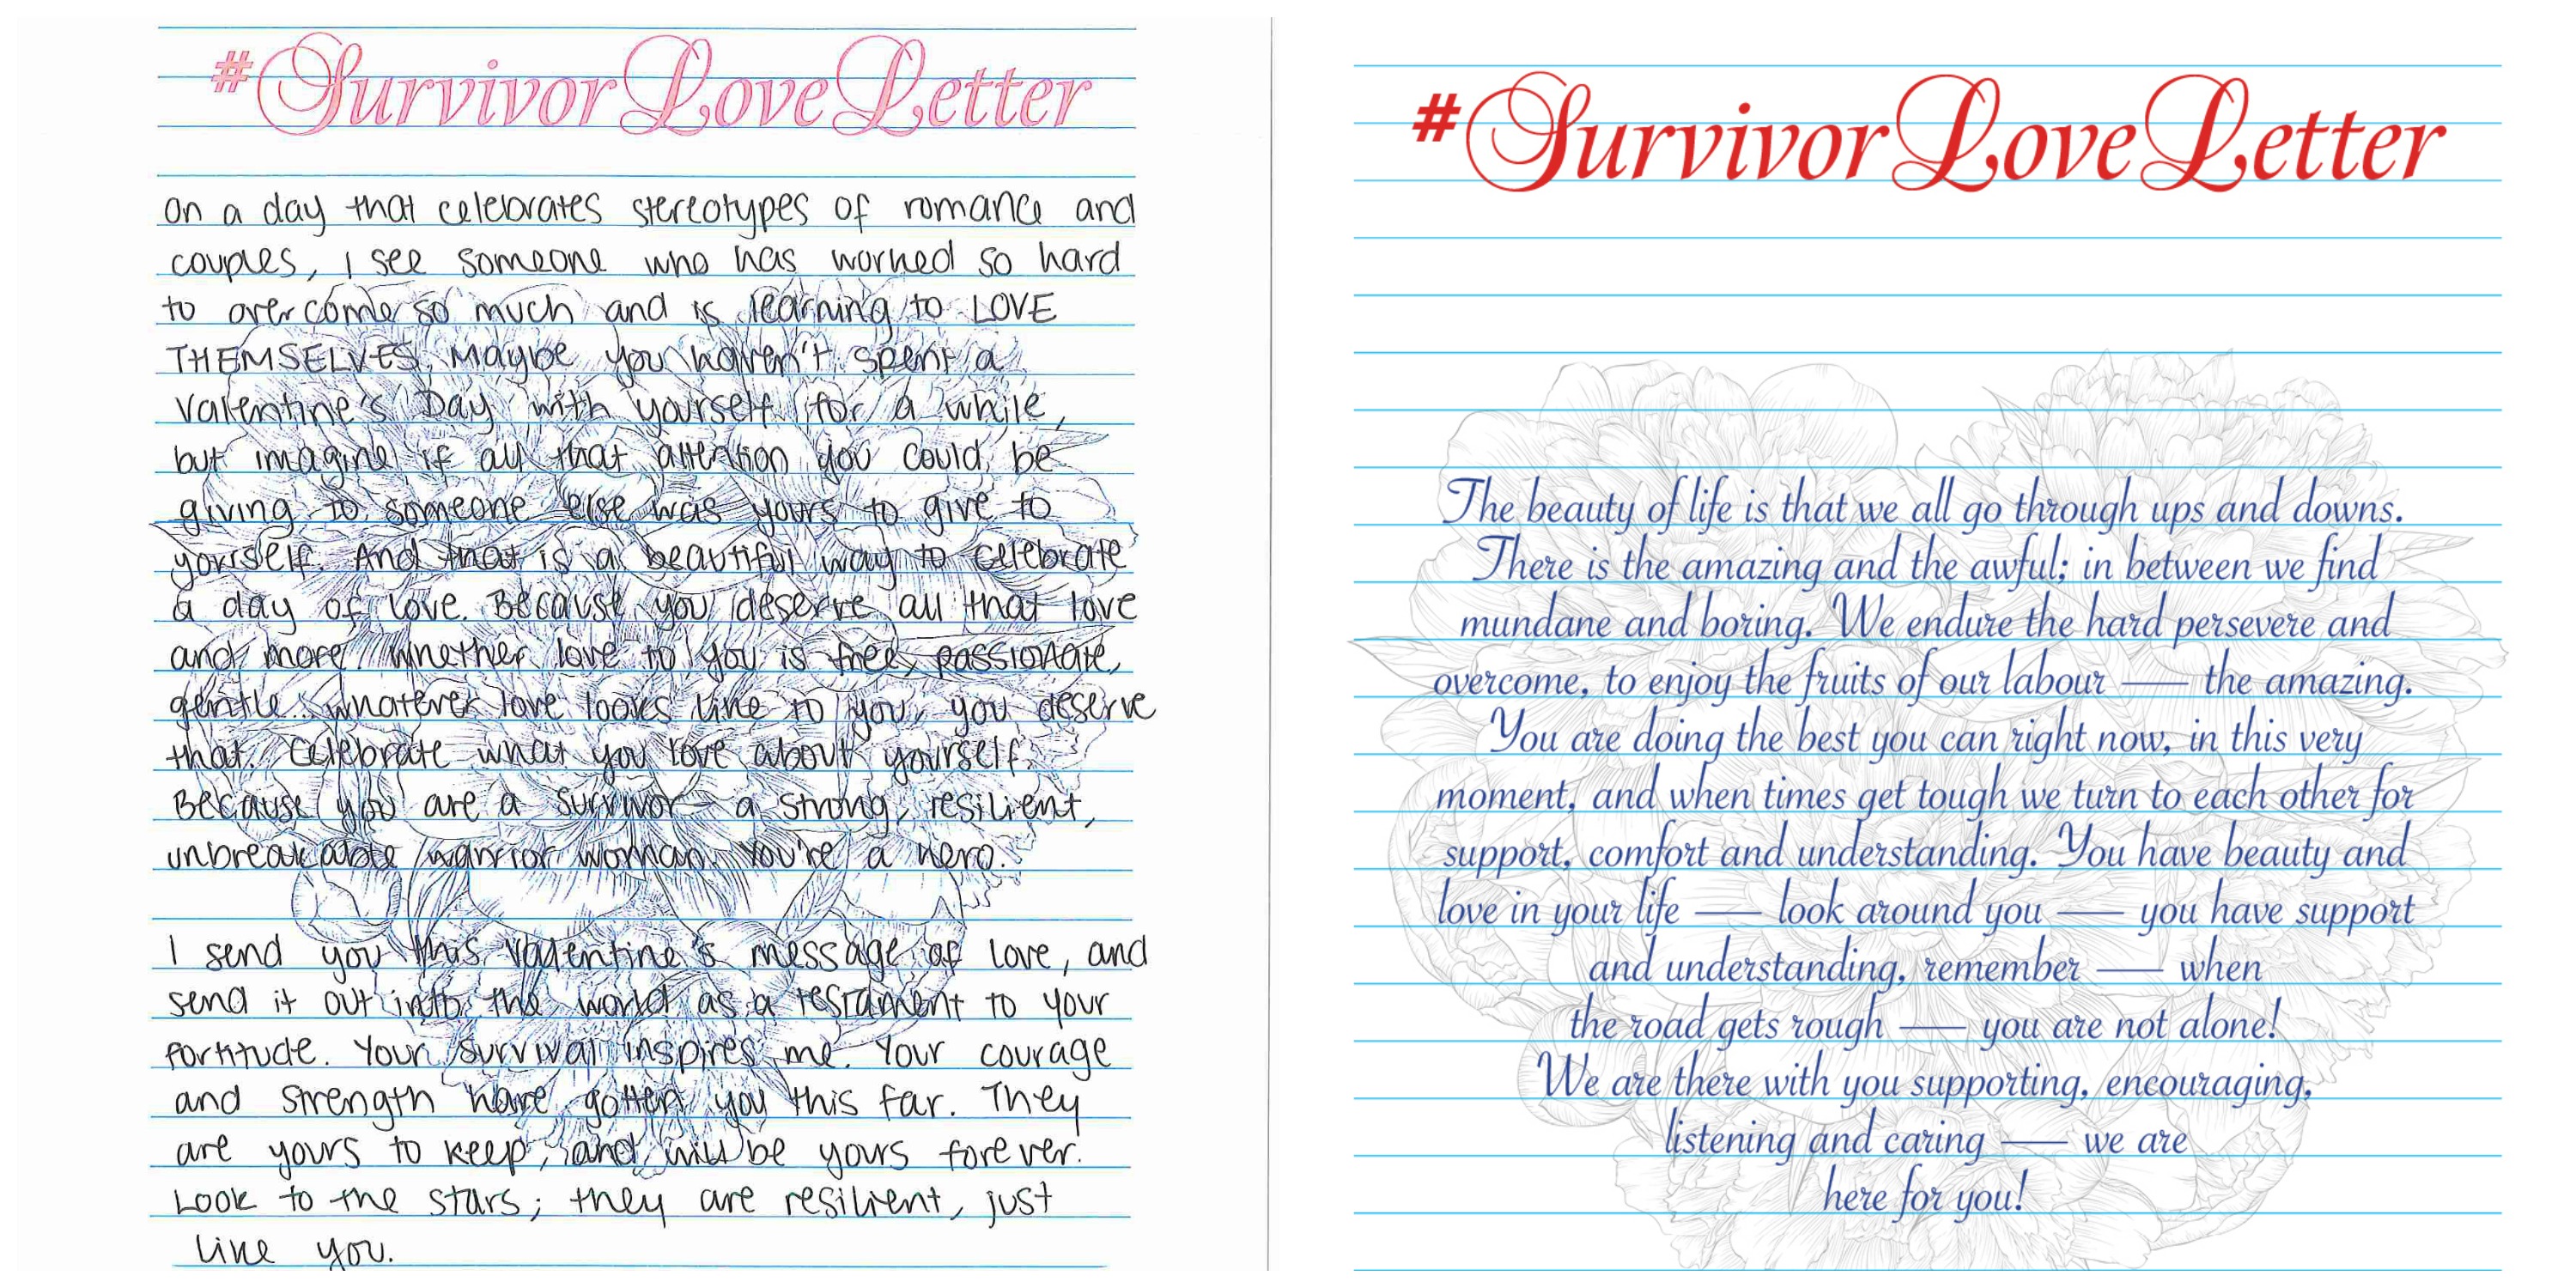 #SurvivorLoveLetter
on a day that celebrates stereotypes of romance and
couples, I see someone who has worked so hard
to overcome so much and is learning to LOVE
THEMSELVES. Maybe you haven't spent a
Valentine's Day with yourself for a while,
but imagine if all that attention you could be
giving to someone else was yours to give to
yourself. And that is a beautiful way to celebrate
a day of love. Because you deserve all that love
and more. Whether love to you is free, passionate,
gentle.. whatever love looks like to you, you deserve
that. Celebrate what you love about yourself.
Because you are a survivor - a strong, resilient,
unbreakable warrior woman. You're a hero.
I send you this Valentine's message of love, and
send it out into the world as a testament to your
fortitude. Your survival inspires me. Your courage
and strength have gotten you this far. They
are yours to keep, and will be yours forever.
Look to the stars; they are resilient, just
like you.
#SurvivorLoveLetter
The beauty of life is that we all go through ups and downs.
There is the amazing and the awful; in between we find
mundane and boring. We endure the hard persevere and
overcome, to enjoy the fruits of our labour — the amazing.
You are doing the best you can right now, in this very
moment, and when times get tough we turn to each other for
support, comfort and understanding. You have beauty and
love in your life — look around you — you have support
and understanding, remember — when
the road gets rough — you are not alone!
We are there with you supporting, encouraging,
listening and caring — we are
here for you!